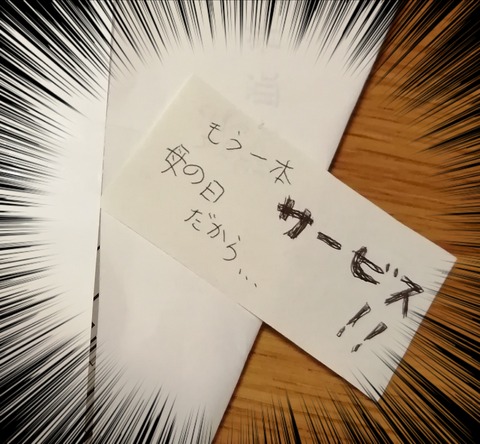 もう一本
サービス
!!
母の日
だから...